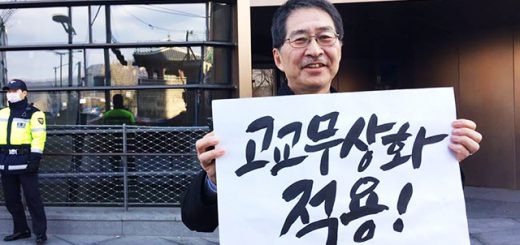 고교무상화
적용!